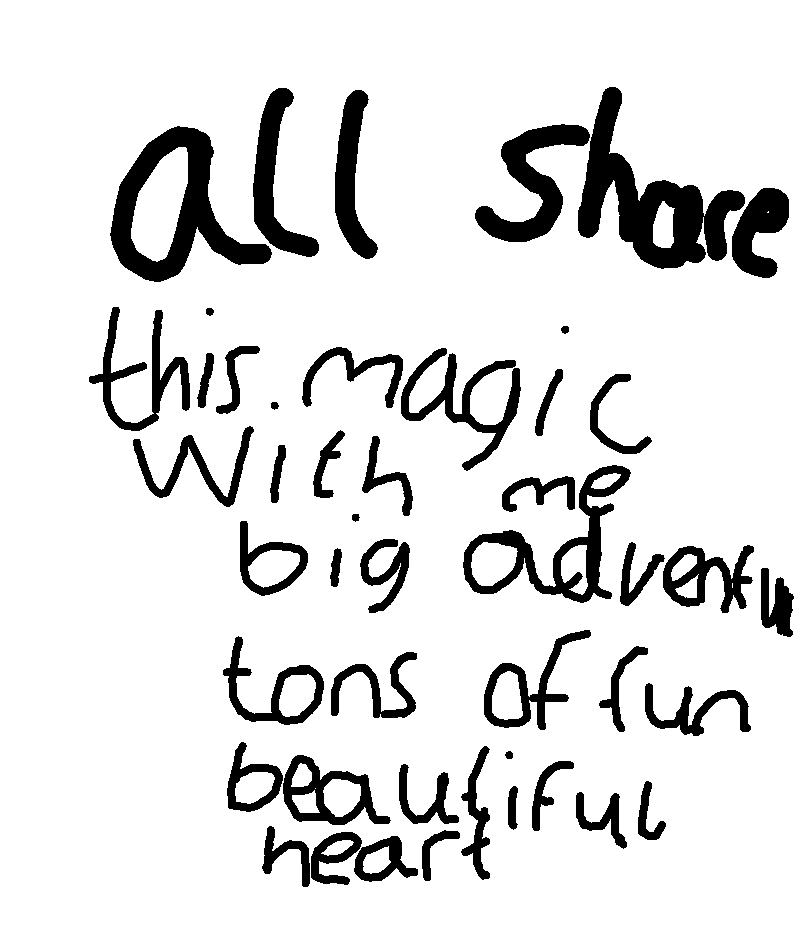 all share
this. magic
With me
big adventu
tons of fun
beautiful
heart